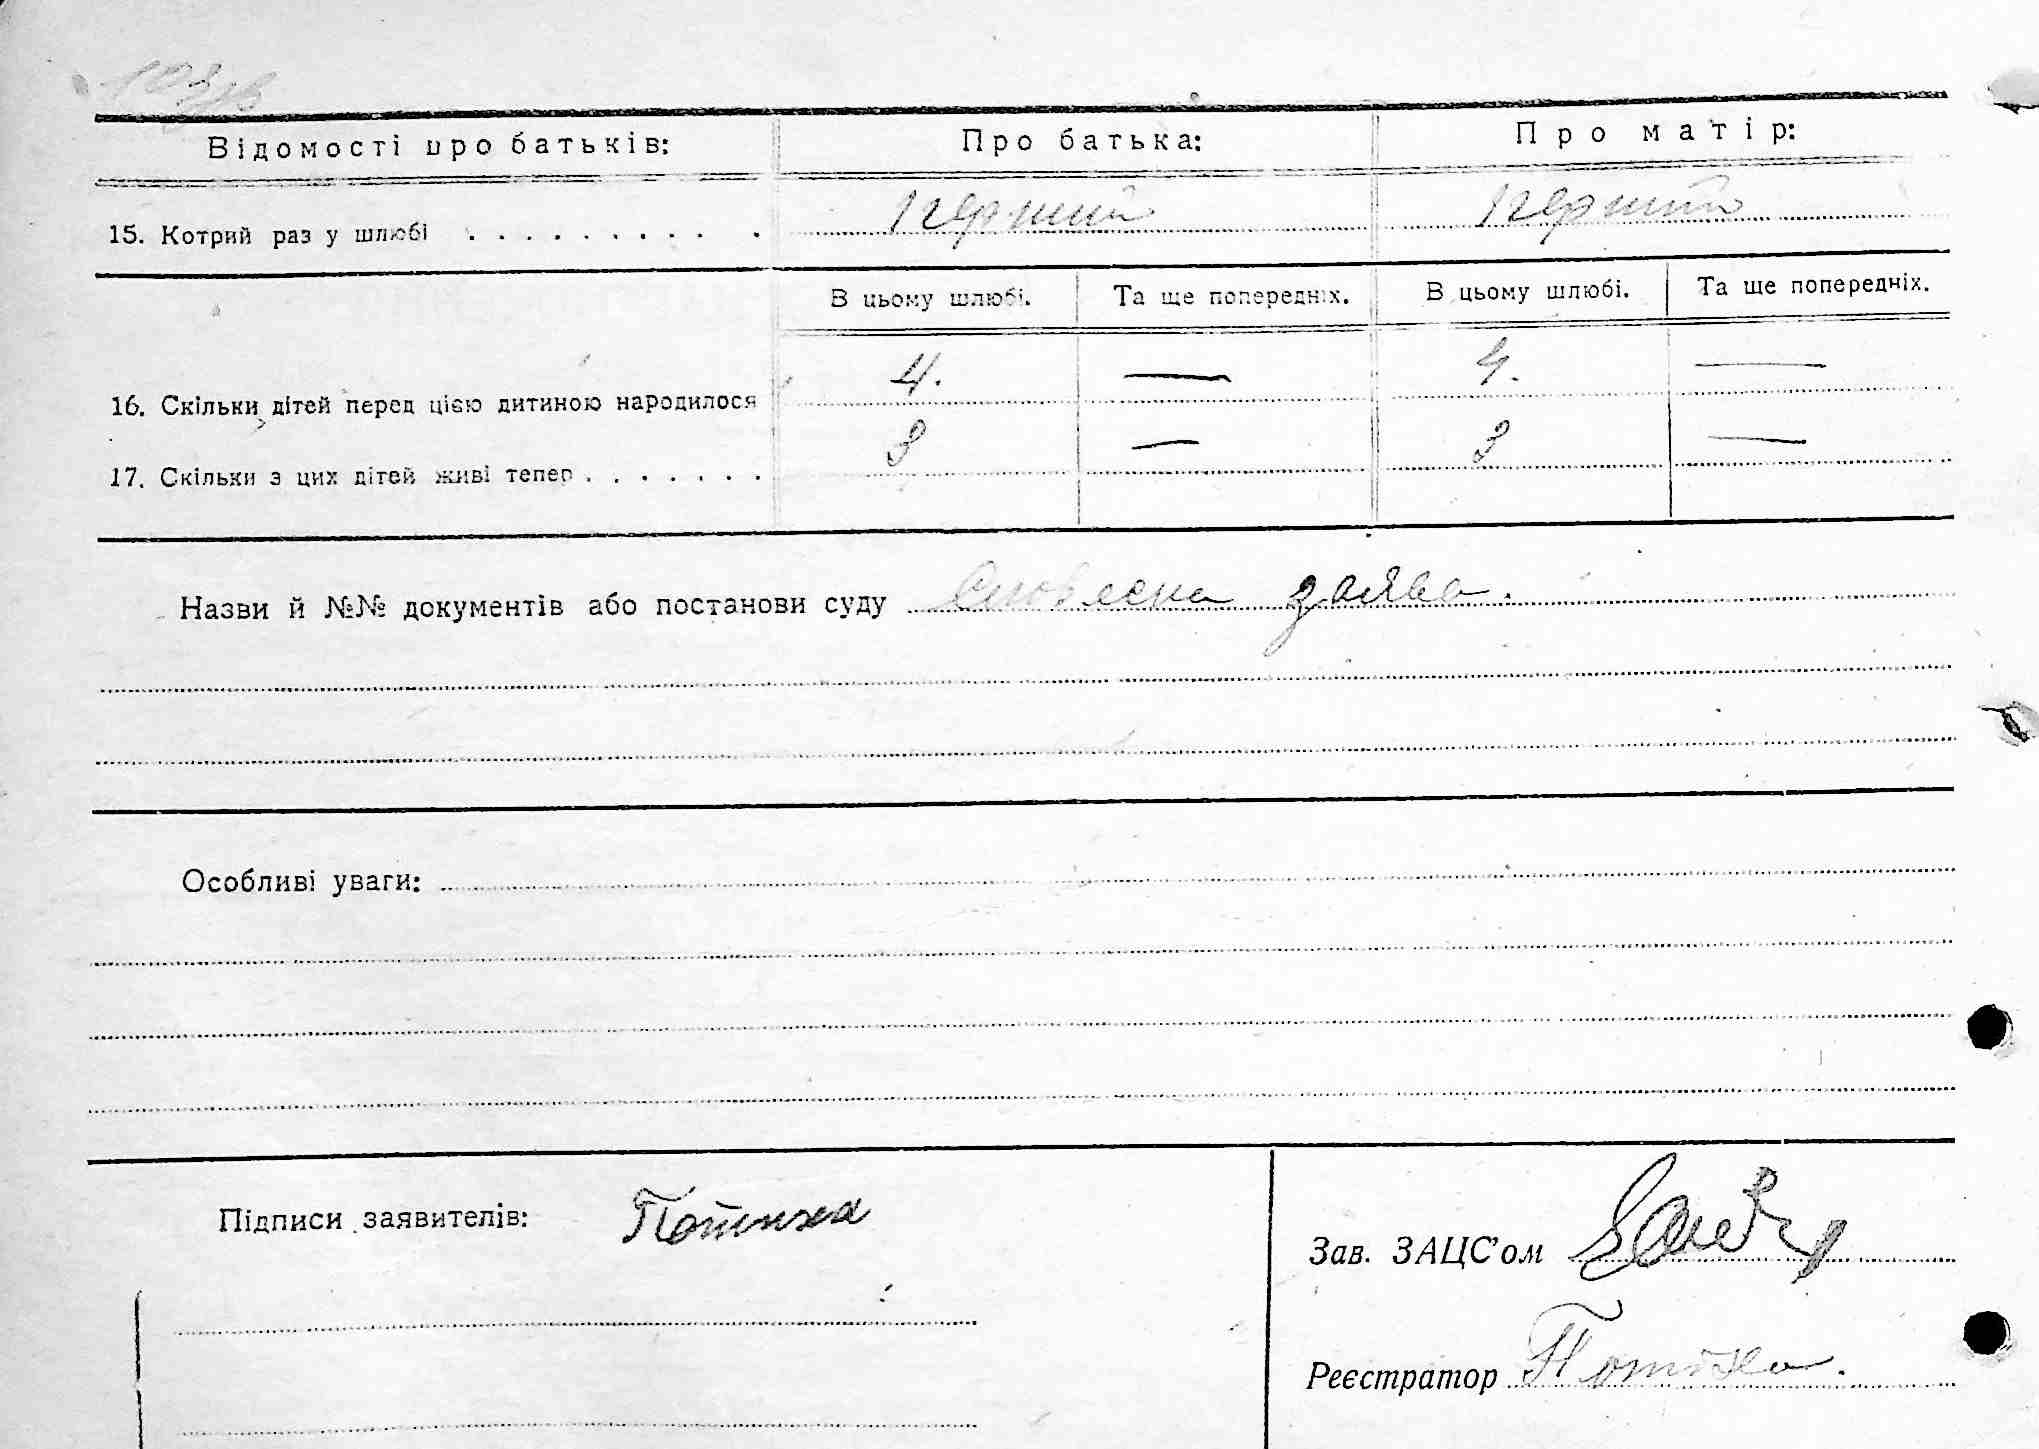 103зв
Відомості про батьків: Про батька: Про матір:
15. Котрий раз у шлюбі . . . . . . . . . . . перший перший
В цьому шлюбі. Та ще попередніх. В цьому шлюбі. Та ще попередніх.
16. Скільки дітей перед цією дитиною народилося 4. — 4. —
17. Скільки з цих дітей живі тепер . . . . . . . 3 — 3 —
Назви й №№ документів або постанови суду Словесна заява.
Особливі уваги:
Підписи заявителів:
Зав. ЗАЦС’ом
Реєстратор